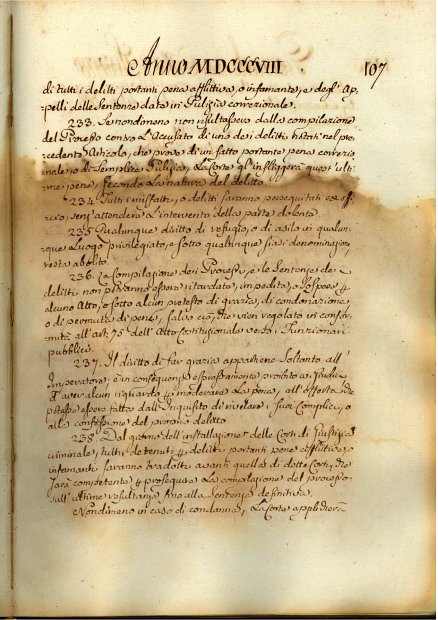 Anno MDCCCVIII
107
di tutti i delitti portanti pena afflittiva, o infamante, e degl' Ap-
-pelli delle Sentenze date in Pulizia correzionale.
233. Se nondimeno non risultasse dalla compilazione
del Processo contro L'Accusato di uno dei delitti notati nel pre-
cedente Articolo, che prove di un fatto portante pena correzio-
nale, o di Semplice Pulizia, La Corte gl' infliggerà quest' ulti-
me pene, secondo La natura del delitto.
234. Tutti i misfatti, o delitti saranno perseguitati ex offi-
cio, senz' attendere L'intervento della parte dolente.
235. Qualunque diritto di refugio, o di asilo in qualun-
-que Luogo privilegiato, e sotto qualunque siasi denominazione,
resta abolito.
236. La Compilazione dei Processi, e le Sentenze dei
delitti non potranno essere ritardate, impedite, o Sospese p
alcuno Atto, o sotto alcun pretesto di grazia, di condonazione,
o di permuta di pene, salvo ciò, che vien regolato in confor-
mità all' art. 75 dell' Atto Costituzionale verso i Funzionari
pubblici.
237. Il diritto di far grazia appartiene Soltanto all'
Imperatore, è in conseguenza espressamente proibito ai Giudici
d' aver alcun riguardo p moderare La pena, all' offerta che
potesse essere fatta dall' Inquisito di rivelare i suoi Complici, o
alla confessione del proprio delitto.
238. Dal giorno dell' installazione delle Corti di Giustizia
criminale, tutti i detenuti p delitti portanti pene afflittive, o
infamanti saranno tradotti avanti quella di dette Corti, che
Sarà competente p proseguire La compilazione del processo
sull' ultime resultanze fino alla Sentenza definitiva.
Nondimeno in caso di condanna, La Corte applicherà